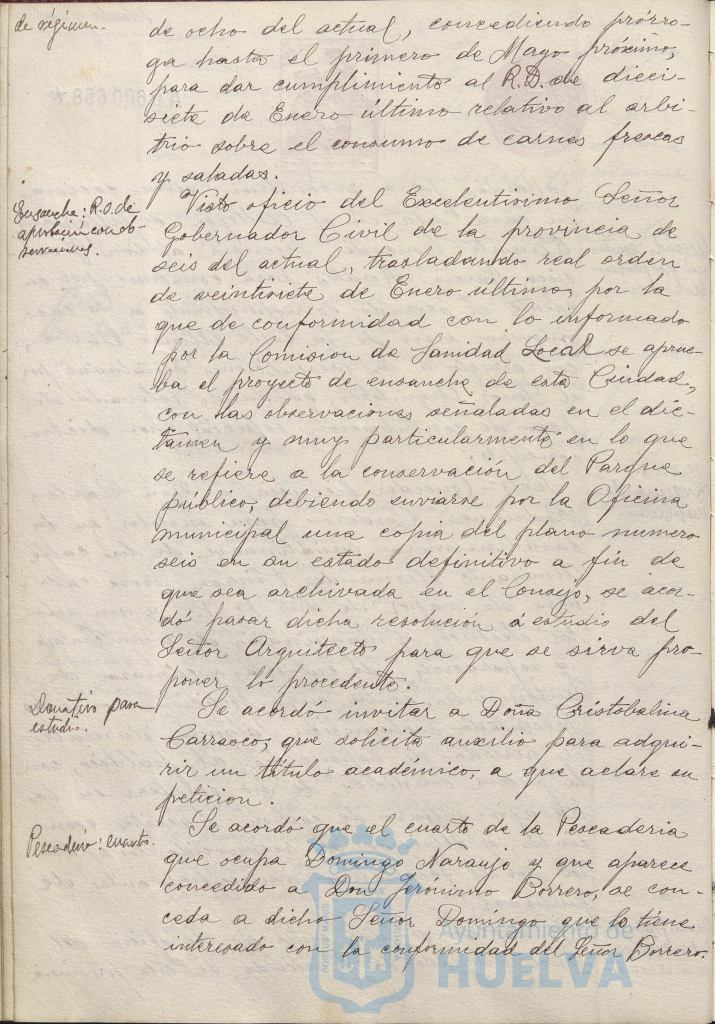 de régimen.
de ocho del actual, concediendo prórro-
ga hasta el primero de Mayo próximo,
para dar cumplimiento al R.D. de dieci-
siete de Enero último relativo al arbi-
trio sobre el consumo de carnes frescas
y saladas.
Ensanche: R.O. de
aprobación con ob-
servaciones.
Visto oficio del Excelentisimo Señor
Gobernador Civil de la provincia de
seis del actual, trasladando real orden
de veintisiete de Enero último, por la
que de conformidad con lo informado
por la Comision de Sanidad Local se aprue-
ba el proyecto de ensanche de esta Ciudad,
con las observaciones señaladas en el dic-
tamen y muy particularmente en lo que
se refiere a la conservación del Parque
público, debiendo enviarse por la Oficina
municipal una copia del plano numero
seis en su estado definitivo a fin de
que sea archivada en el Consejo, se acor-
dó pasar dicha resolución á estudio del
Señor Arquitecto para que se sirva pro-
poner lo procedente.
Donativo para
estudio.
Se acordó invitar a Doña Cristobalina
Carrasco, que solicita auxilio para adqui-
rir un título académico, a que aclare su
peticion.
Pescaderia: cuarto.
Se acordó que el cuarto de la Pescaderia
que ocupa Domingo Naranjo y que aparece
concedido a Don Jerónimo Borrero, se con-
ceda a dicho Señor Domingo que lo tiene
interesado con la conformidad del Señor Borrero.
Ayuntamiento de
HUELVA